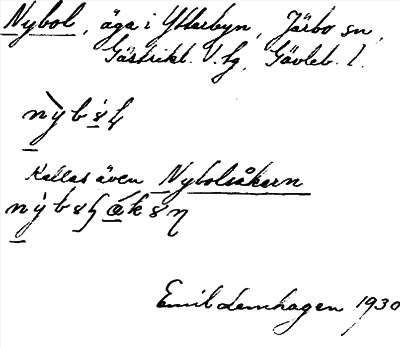 Nybol, äga i Ytterbyn, Järbo sn,
Gästrikl. V. tg, Gävleb. l.
Kallas även Nybolsåkern
Emil Lennhagen 1930